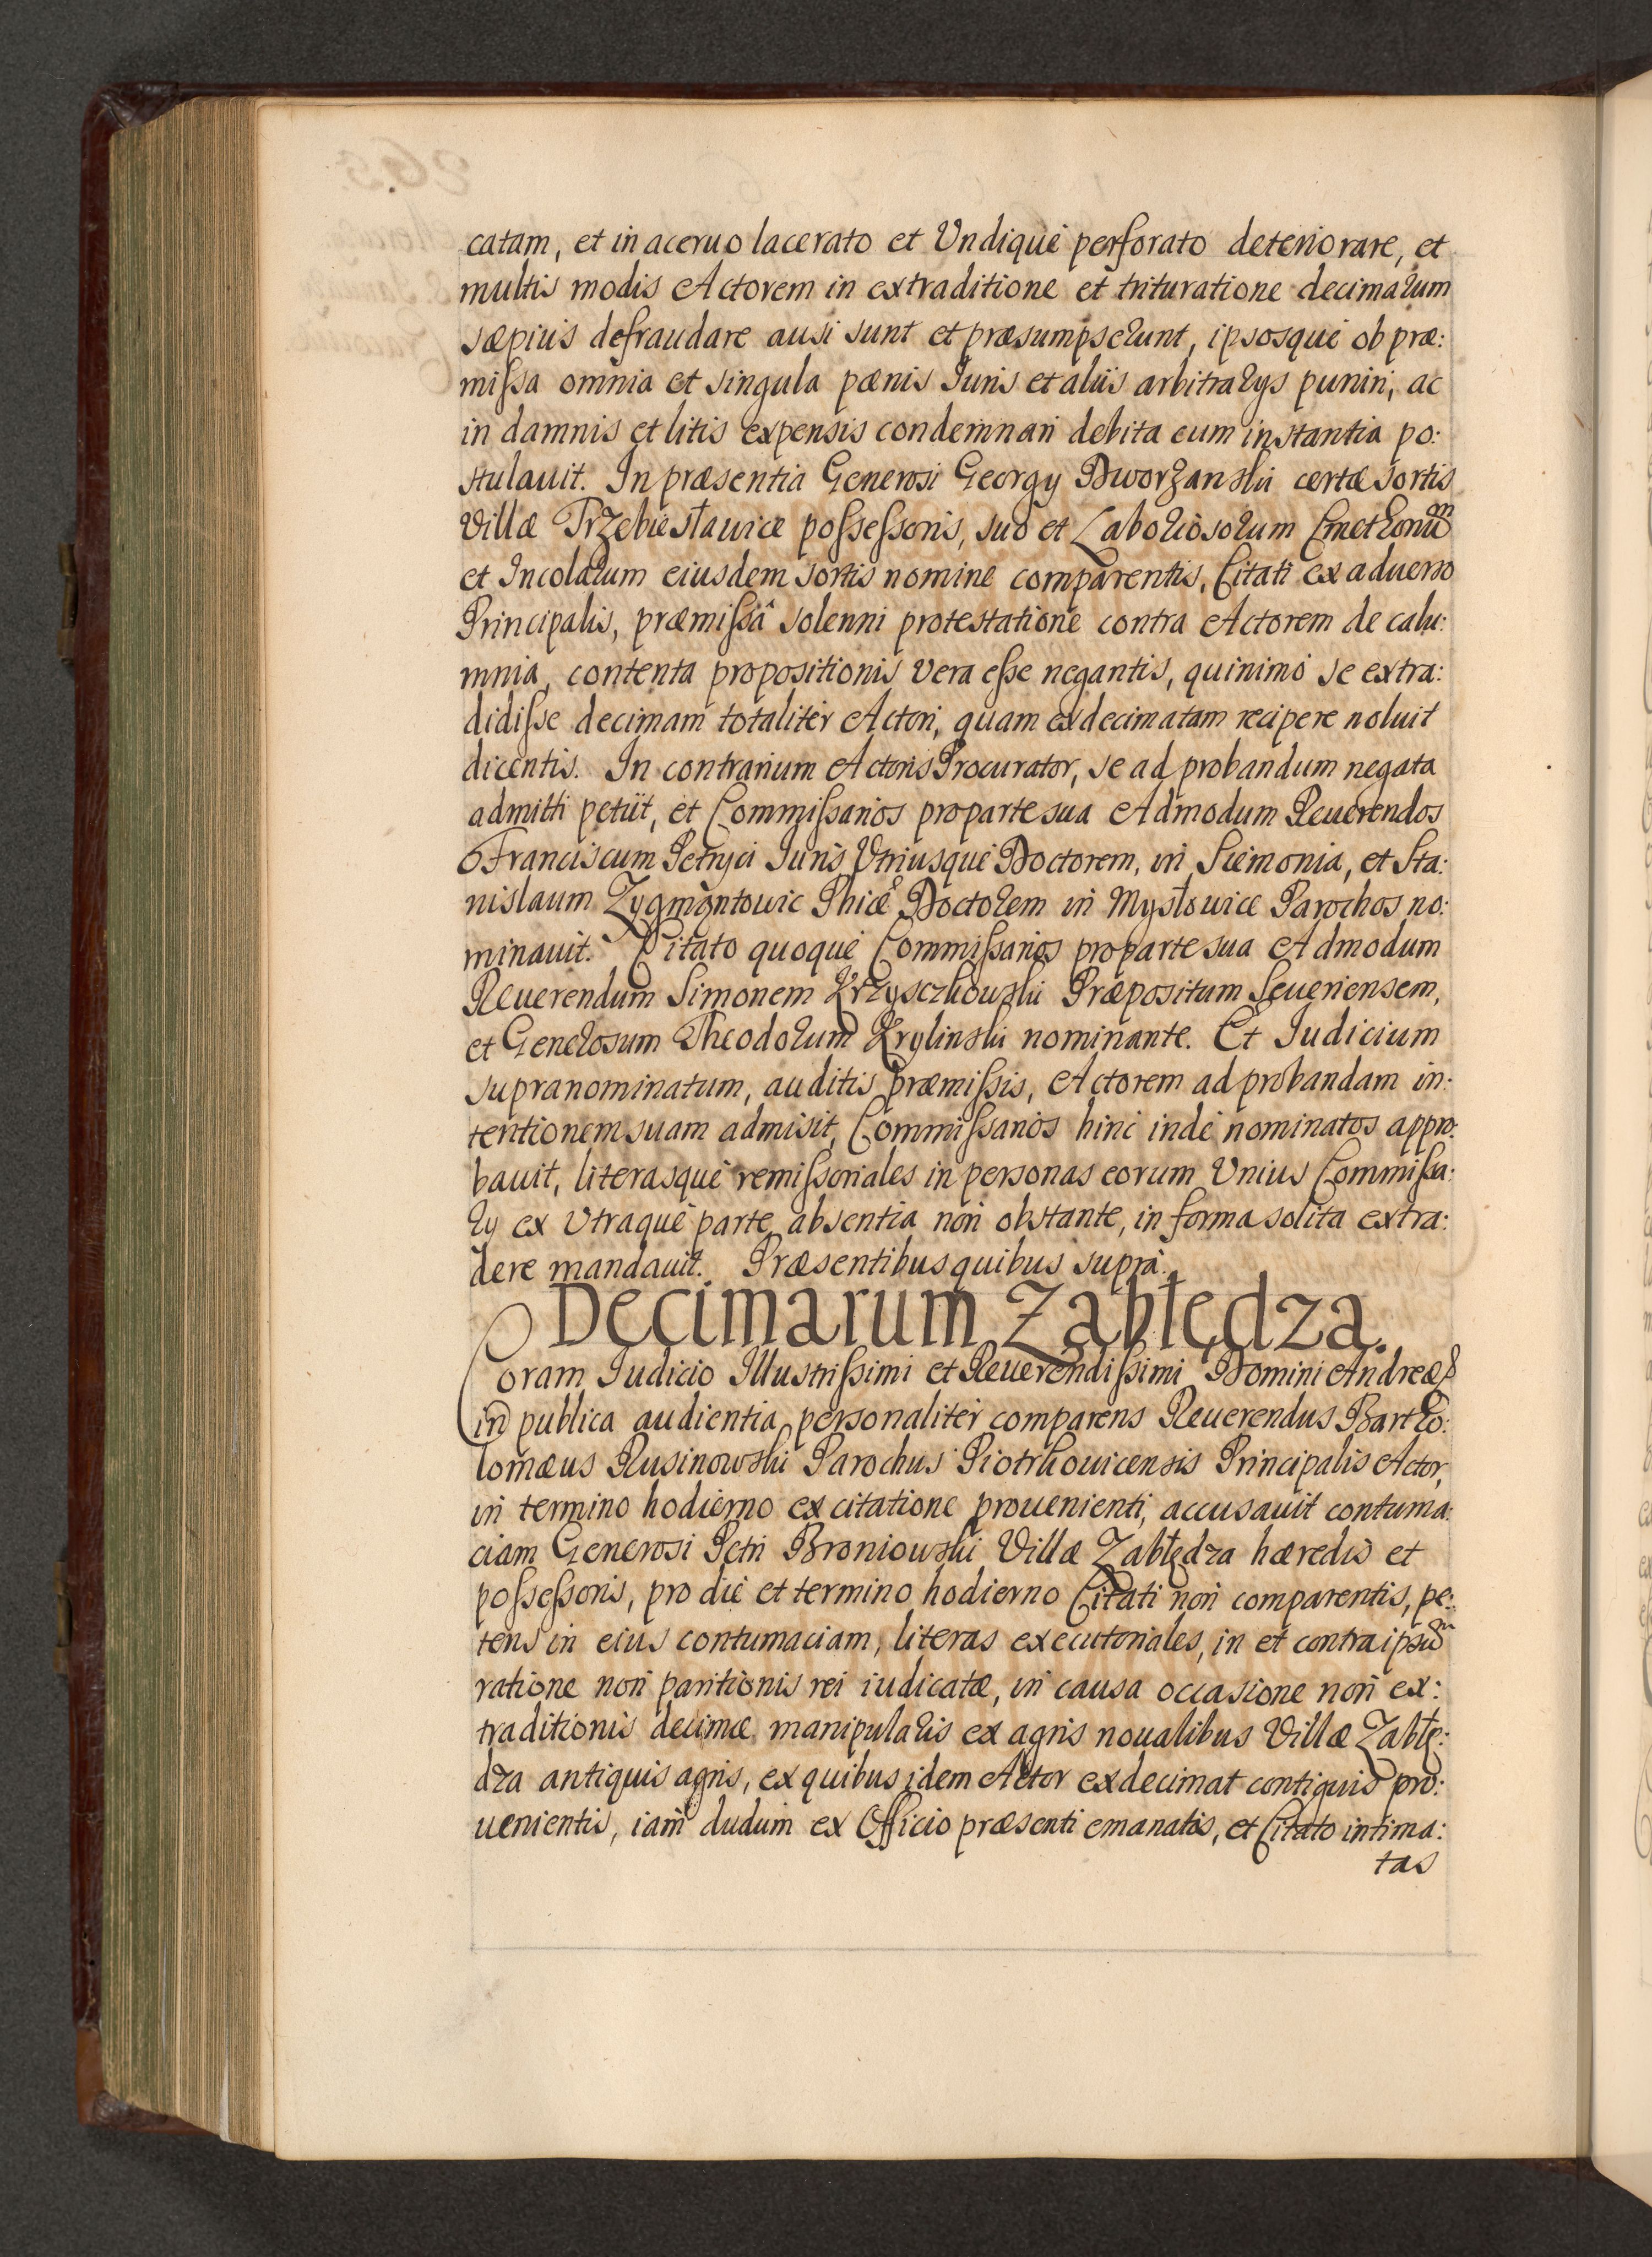 catam, et in aceruo lacerato et Vndiquè perforato deteriorare, et
multis modis Actorem in extraditione et trituratione decimarum
sæpiùs defraudare ausi sunt et præsumpserunt, ipsosquè ob præ:
missa omnia et singula pænis Iuris et alijs arbitrarys puniri, ac
in damnis et litis expensis condemnari debita cum instantia po:
stulauit. In præsentia Generosi Georgy Dworzanski certæ sortis
Villæ Trzebiesławice possessoris, suo et Laboriosorum Cmethonũm
et Incolarum eiusdem sortis nomine comparentis, Citati ex aduerso
Principalis, præmissâ solenni protestatione contra Actorem de calu:
mnia, contenta propositionis vera esse negantis, quinimò se extra:
didisse decimam totalitèr Actori, quam exdecimatam recipere noluit
dicentis. In contrarium Actoris Procurator, se ad probandum negata
admitti petÿt, et Commissarios pro parte sua Admodum Reuerendos
Franciscum Petryci Iuris Vtriusquè Doctorem, in Siemonia, et Sta:
nislaum Zygmontowic Phiæ Doctorem in Mysłowice Parochos no:
minauit. Citato quoquè Commissarios pro parte sua Admodum
Reuerendum Simonem Krzysczkowski Præpositum Seueriensem,
et Generosum Theodorum Krylinski nominante. Et Iudicium
supranominatum, auditis præmissis, Actorem ad probandam in:
tentionem suam admisit, Commissarios hinc indè nominatos appro:
bauit, literasquè remissoriales in personas eorum Vnius Commissa:
ry ex Vtraquè parte absentia non obstante, in forma solita extra:
dere mandauit. Præsentibus quibus suprà.
Decimarum Zabłędza.
Coram Iudicio Illustrissimi et Reuerendissimi Domini Andreæ
in publica audientia personalitèr comparens Reuerendus Bartho:
lomæus Rusinowski Parochus Piotrkouicensis Principalis Actor,
in termino hodierno ex citatione prouenienti, accusauit contuma:
ciam Generosi Petri Broniowski Villæ Zabłędza hæredis et
possessoris, pro die et termino hodierno Citati non comparentis, pe:
tens in eius contumaciam, literas executoriales, in et contra ipsũm
ratione non paritionis rei iudicatæ, in causa occasione non ex:
traditionis decimæ manipularis ex agris noualibus Villæ Zabłę:
dza antiquis agris, ex quibus idem Actor exdecimat contiguis pro:
uenientis, iam dudum ex Officio præsenti emanatas, et Citato intima:
tas